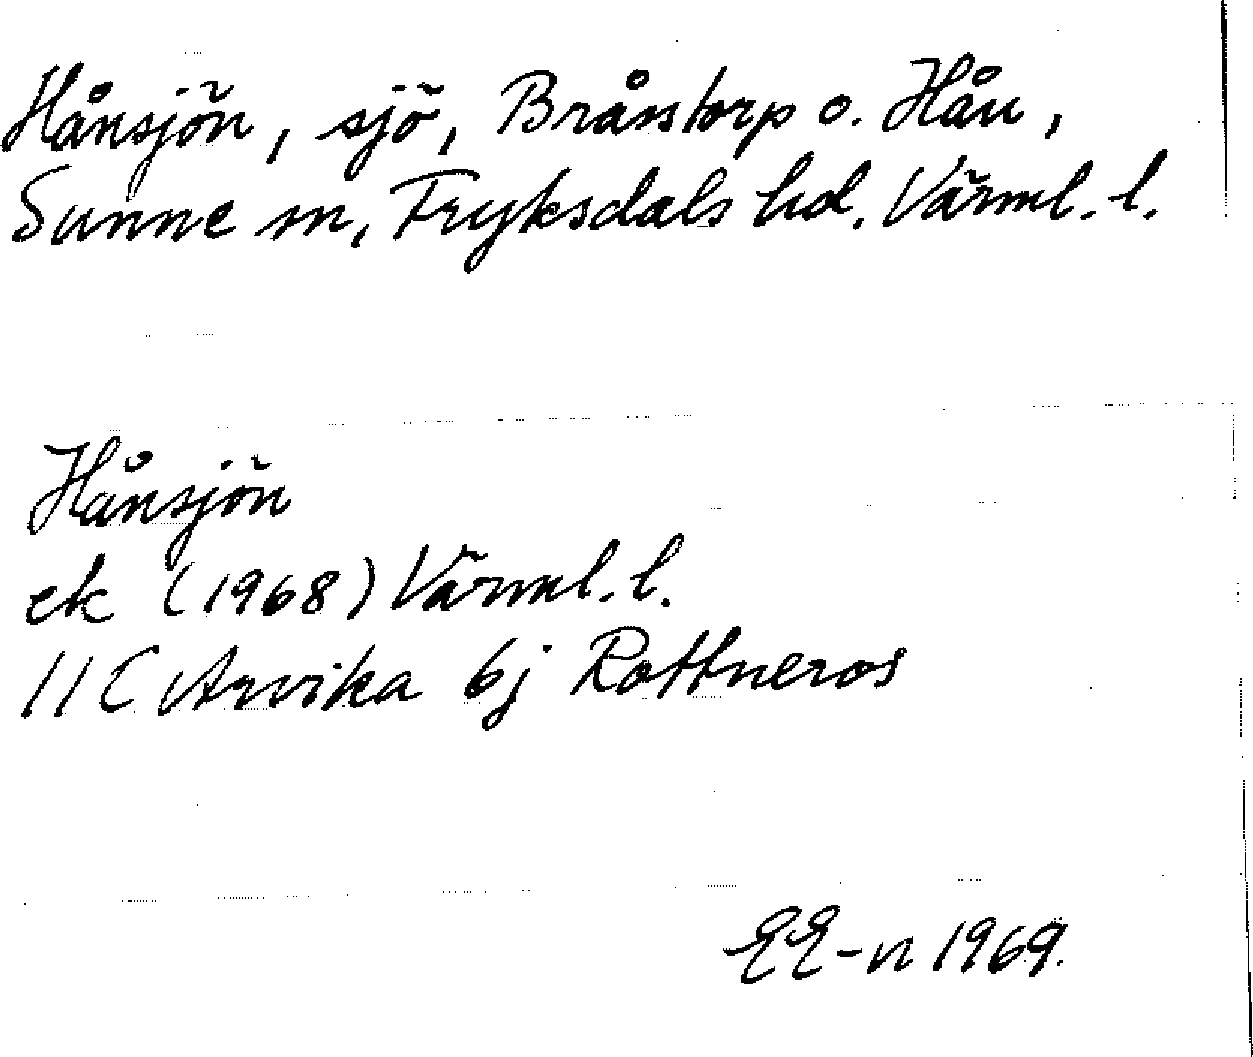 Hånsjön, sjö, Bråstorp o. Hån,
Sunne sn, Fryksdals hd. Värml. l.
Hånsjön
ek (1968) Värml. l.
11C Arvika 6j Rottneros
EE-n 1969.